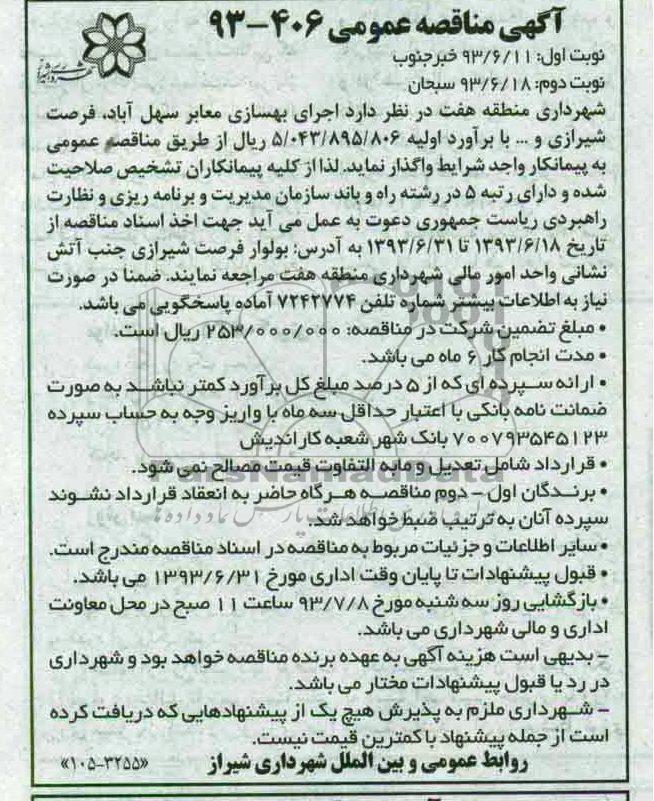 آگهی مناقصه عمومی ۴۰۶-۹۳
نوبت اول: ۹۳/۶/۱۱ خبرجنوب
نوبت دوم: ۹۳/۶/۱۸ سبحان
شهرداری منطقه هفت در نظر دارد اجرای بهسازی معابر سهل آباد، فرصت
شیرازی و ... با برآورد اولیه ۵/۰۴۳/۸۹۵/۸۰۶ ریال از طریق مناقصه عمومی
به پیمانکار واجد شرایط واگذار نماید. لذا از کلیه پیمانکاران تشخیص صلاحیت
شده و دارای رتبه ۵ در رشته راه و باند سازمان مدیریت و برنامه ریزی و نظارت
راهبردی ریاست جمهوری دعوت به عمل می آید جهت اخذ اسناد مناقصه از
تاریخ ۱۳۹۳/۶/۱۸ تا ۱۳۹۳/۶/۳۱ به آدرس: بولوار فرصت شیرازی جنب آتش
نشانی واحد امور مالی شهرداری منطقه هفت مراجعه نمایند. ضمنا در صورت
نیاز به اطلاعات بیشتر شماره تلفن ۷۲۴۲۷۷۴ آماده پاسخگویی می باشد.
• مبلغ تضمین شرکت در مناقصه: ۲۵۳/۰۰۰/۰۰۰ ریال است.
• مدت انجام کار ۶ ماه می باشد.
• ارائه سپرده ای که از ۵ درصد مبلغ کل برآورد کمتر نباشد به صورت
ضمانت نامه بانکی با اعتبار حداقل سه ماه یا واریز وجه به حساب سپرده
۷۰۰۷۹۳۵۴۵۱۲۳ بانک شهر شعبه کاراندیش
• قرارداد شامل تعدیل و مابه التفاوت قیمت مصالح نمی شود.
ParsNamadData
• برندگان اول - دوم مناقصه هرگاه حاضر به انعقاد قرارداد نشوند
سپرده آنان به ترتیب ضبط خواهد شد.
• سایر اطلاعات و جزئیات مربوط به مناقصه در اسناد مناقصه مندرج است.
• قبول پیشنهادات تا پایان وقت اداری مورخ ۱۳۹۳/۶/۳۱ می باشد.
• بازگشایی روز سه شنبه مورخ ۹۳/۷/۸ ساعت ۱۱ صبح در محل معاونت
اداری و مالی شهرداری می باشد.
- بدیهی است هزینه آگهی به عهده برنده مناقصه خواهد بود و شهرداری
در رد یا قبول پیشنهادات مختار می باشد.
- شهرداری ملزم به پذیرش هیچ یک از پیشنهادهایی که دریافت کرده
است از جمله پیشنهاد با کمترین قیمت نیست.
روابط عمومی و بین الملل شهرداری شیراز
«۱۰۵-۳۲۵۵»